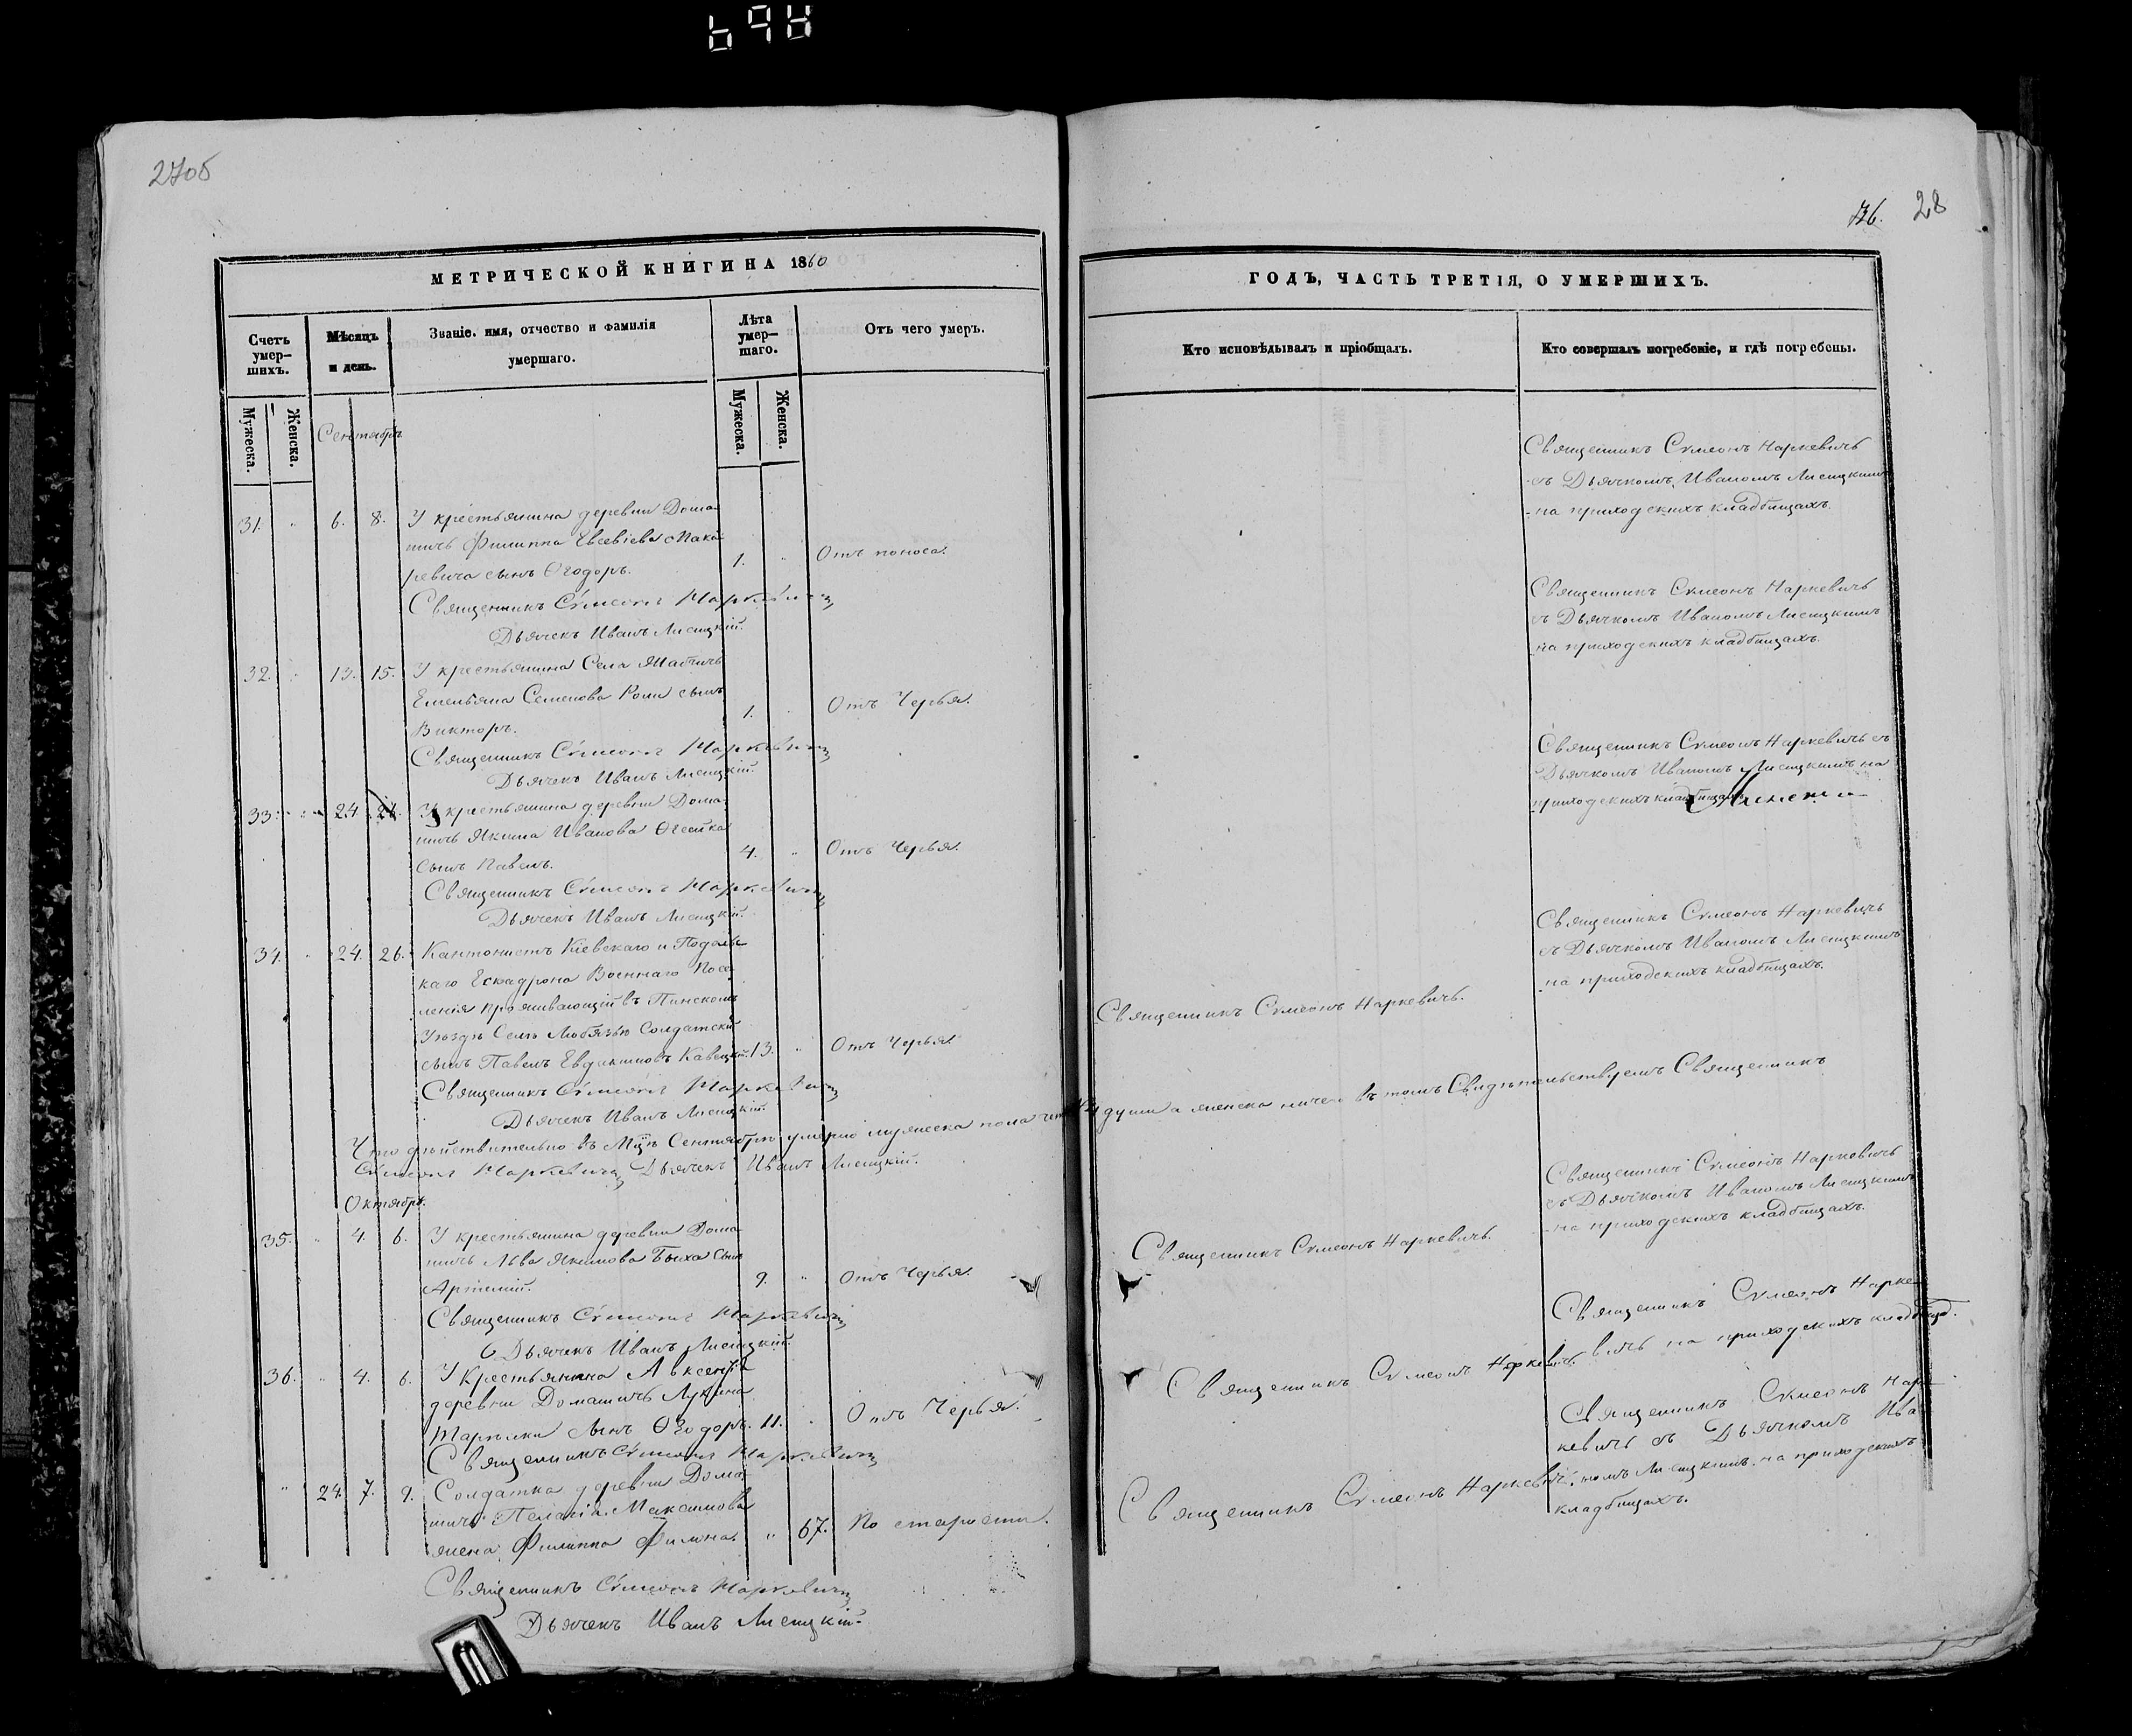 27об
МЕТРИЧЕСКОЙ КНИГИ НА 1860
Счетъ умер-шихъ.
Мѣсяцъ и день.
Званіе, имя, отчество и фамилія умершаго.
Лѣта умер-шаго.
Отъ чего умеръ.
Мужеска.
Женска.
Мужеска.
Женска.
Сентябрь
31. " 6. 8. У крестьянина деревни Дома-
шичъ Филиппа Евсевіева Мака-
ревича сынъ Ѳеодоръ. 1. " Отъ поноса.
Священникъ Сѵмеонъ Наркевичъ
Дьячекъ Иванъ Лисицкій.
32. " 13. 15. У крестьянина Села
Емельяна Семенова сынъ
Викторъ. 1. " Отъ Червья.
Священникъ Сѵмеонъ Наркевичъ
Дьячекъ Иванъ Лисицкій.
33. " 24. У крестьянина деревни Дома-
шичъ Якима Иванова
сынъ Павелъ. 4. " Отъ Червья.
Священникъ Сѵмеонъ Наркевичъ
Дьячекъ Иванъ Лисицкій.
34. " 24. 26. Кантонистъ Кіевскаго и Подоль-
каго Ескадрона Военнаго Посе-
ленія проживающій въ Пинскомъ
Уѣздѣ Селѣ Любязью Солдатскій
сынъ Павелъ Евдакимовъ 13. " Отъ Червья.
Священникъ Сѵмеонъ Наркевичъ
Дьячекъ Иванъ Лисицкій.
Что дѣйствительно въ Мцѣ Сентябрѣ умерло мужеска пола 4 души а женска въ томъ Свидѣтельствуемъ Священникъ
Сѵмеонъ Наркевичъ Дьячекъ Иванъ Лисицкій.
Октябрь.
35. " 4. 6. У крестьянина деревни Дома-
шичъ Льва Якимова Быха сынъ
Артемій. 9. " Отъ Червья.
Священникъ Сѵмеонъ Наркевичъ
Дьячекъ Иванъ Лисицкій.
36. " 4. 6. У Крестьянина Авксентія
деревни Домашичъ
сынъ Ѳеодоръ. 11. " Отъ Червья.
Священникъ Сѵмеонъ Наркевичъ
" 24. 7. 9. Солдатка деревни Дома-
шичъ Пелагія Максимова
жена Филиппа " 67. По старости.
Священникъ Сѵмеонъ Наркевичъ
Дьячекъ Иванъ Лисицкій.
28
ГОДЪ, ЧАСТЬ ТРЕТІЯ, О УМЕРШИХЪ.
Кто исповѣдывалъ и пріобщалъ.
Кто совершалъ погребеніе, и гдѣ погребены.
Священникъ Сѵмеонъ Наркевичъ
съ Дьячкомъ Иваномъ Лисицкимъ
на приходскихъ кладбищахъ.
Священникъ Сѵмеонъ Наркевичъ
съ Дьячкомъ Иваномъ Лисицкимъ
на приходскихъ кладбищахъ.
Священникъ Сѵмеонъ Наркевичъ съ
Дьячкомъ Иваномъ Лисицкимъ на
приходскихъ кладбищахъ.
Священникъ Сѵмеонъ Наркевичъ
съ Дьячкомъ Иваномъ Лисицкимъ
на приходскихъ кладбищахъ.
Священникъ Сѵмеонъ Наркевичъ.
Священникъ Сѵмеонъ Наркевичъ
съ Дьячкомъ Иваномъ Лисицкимъ
на приходскихъ кладбищахъ.
Священникъ Сѵмеонъ Наркевичъ.
Священникъ Сѵмеонъ Нарке-
вичъ на приходскихъ кладбищ.
Священникъ Сѵмеонъ Наркевичъ.
Священникъ Сѵмеонъ Нар-
кевичъ съ Дьячкомъ Ива-
номъ Лисицкимъ на приходскихъ
кладбищахъ.
Священникъ Сѵмеонъ Наркевичъ.